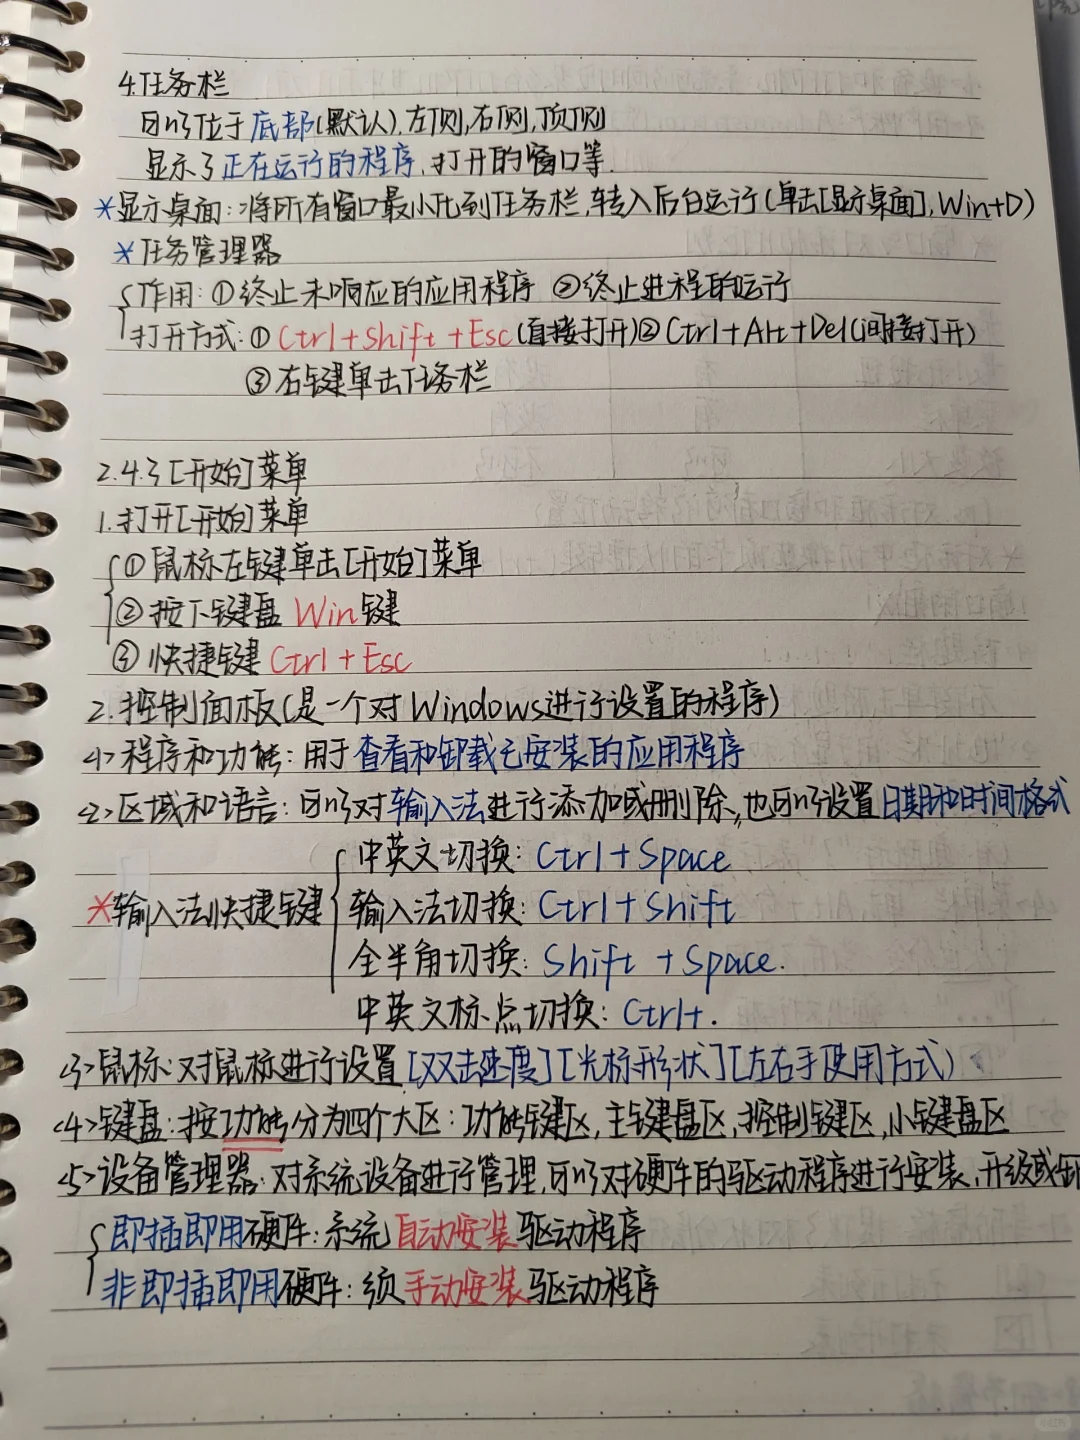 4.任务栏
可以位于底部(默认),左侧,右侧,顶侧
显示了正在运行的程序,打开的窗口等.
*显示桌面:将所有窗口最小化到任务栏,转入后台运行(单击[显示桌面],Win+D)
*任务管理器
作用:①终止未响应的应用程序 ②终止进程的运行
打开方式:①Ctrl+Shift+Esc(直接打开)②Ctrl+Alt+Del(间接打开)
③右键单击任务栏
2.4.3[开始]菜单
1.打开[开始]菜单
①鼠标左键单击[开始]菜单
②按下键盘Win键
③快捷键Ctrl+Esc
2.控制面板(是一个对Windows进行设置的程序)
<1>程序和功能:用于查看和卸载已安装的应用程序
<2>区域和语言:可以对输入法进行添加或删除,也可以设置日期和时间格式
中英文切换:Ctrl+Space
*输入法快捷键 输入法切换:Ctrl+Shift
全半角切换:Shift+Space.
中英文标点切换:Ctrl+.
<3>鼠标:对鼠标进行设置[双击速度][光标形状][左右手使用方式)
<4>键盘:按功能分为四个大区:功能键区,主键盘区,控制键区,小键盘区
<5>设备管理器:对系统设备进行管理,可以对硬件的驱动程序进行安装、升级或卸
即插即用硬件:系统自动安装驱动程序
非即插即用硬件:须手动安装驱动程序